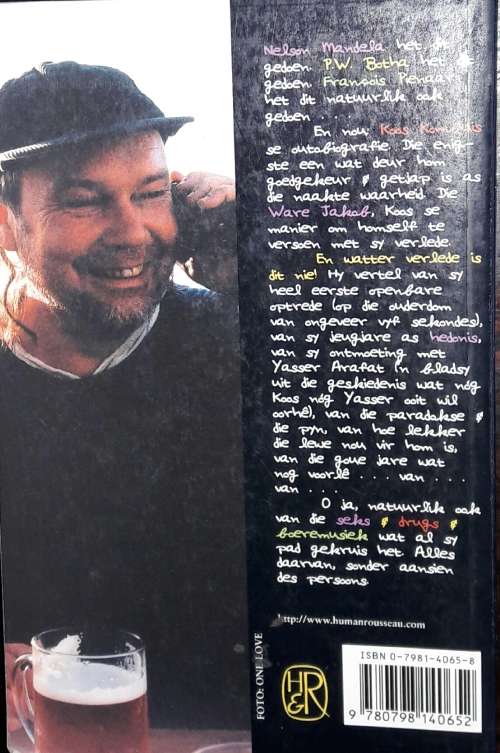 Nelson Mandela het dit
gedoen. P.W. Botha het
gedoen. Francois Pienaar
het dit natuurlik ook
gedoen . . .
En nou Koos Kombuis
se outobiografie. Die enig-
ste een wat deur hom
goedgekeur & getjap is as
die naakte waarheid. Die
Ware Jakob, Koos se
manier om homself te
versoen met sy verlede.
En watter verlede is
dit nie! Hy vertel van sy
heel eerste openbare
optrede (op die ouderdom
van ongeveer vyf sekondes),
van sy jeugjare as hedonis,
van sy ontmoeting met
Yasser Arafat ('n bladsy
uit die geskiedenis wat nóg
Koos nóg Yasser ooit wil
oorhê), van die paradokse &
die pyn, van hoe lekker
die lewe nou vir hom is,
van die goue jare wat
nog voorlê . . . van . . .
van . . .
O ja, natuurlik ook
van die seks & drugs &
boeremusiek wat al sy
pad gekruis het. Alles
daarvan, sonder aansien
des persoons.
http://www.humanrousseau.com
FOTO: ONE LOVE
H&R
ISBN 0-7981-4065-8
9 780798 140652